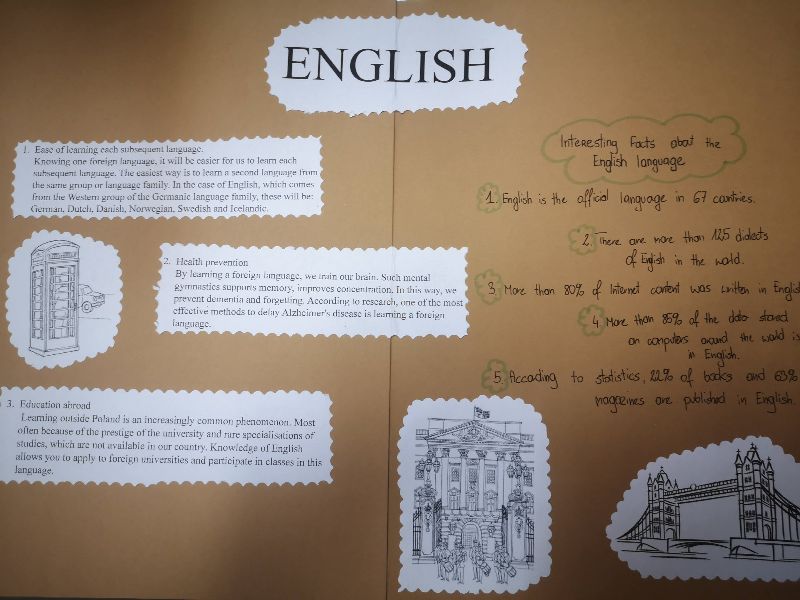 ENGLISH
1. Ease of learning each subsequent language.
Knowing one foreign language, it will be easier for us to learn each
subsequent language. The easiest way is to learn a second language from
the same group or language family. In the case of English, which comes
from the Western group of the Germanic language family, these will be:
German, Dutch, Danish, Norwegian, Swedish and Icelandic.
2. Health prevention
By learning a foreign language, we train our brain. Such mental
gymnastics supports memory, improves concentration. In this way, we
prevent dementia and forgetting. According to research, one of the most
effective methods to delay Alzheimer's disease is learning a foreign
language.
3. Education abroad
Learning outside Poland is an increasingly common phenomenon. Most
often because of the prestige of the university and rare specialisations of
studies, which are not available in our country. Knowledge of English
allows you to apply to foreign universities and participate in classes in this
language.
Interesting Facts about the
English language
1. English is the official language in 67 countries.
2. There are more than 125 dialects
of English in the world.
3. More than 80% of Internet content was written in English
4. More than 85% of the data stored
on computers around the world is
in English.
5. According to statistics, 22% of books and 65%
magazines are published in English.